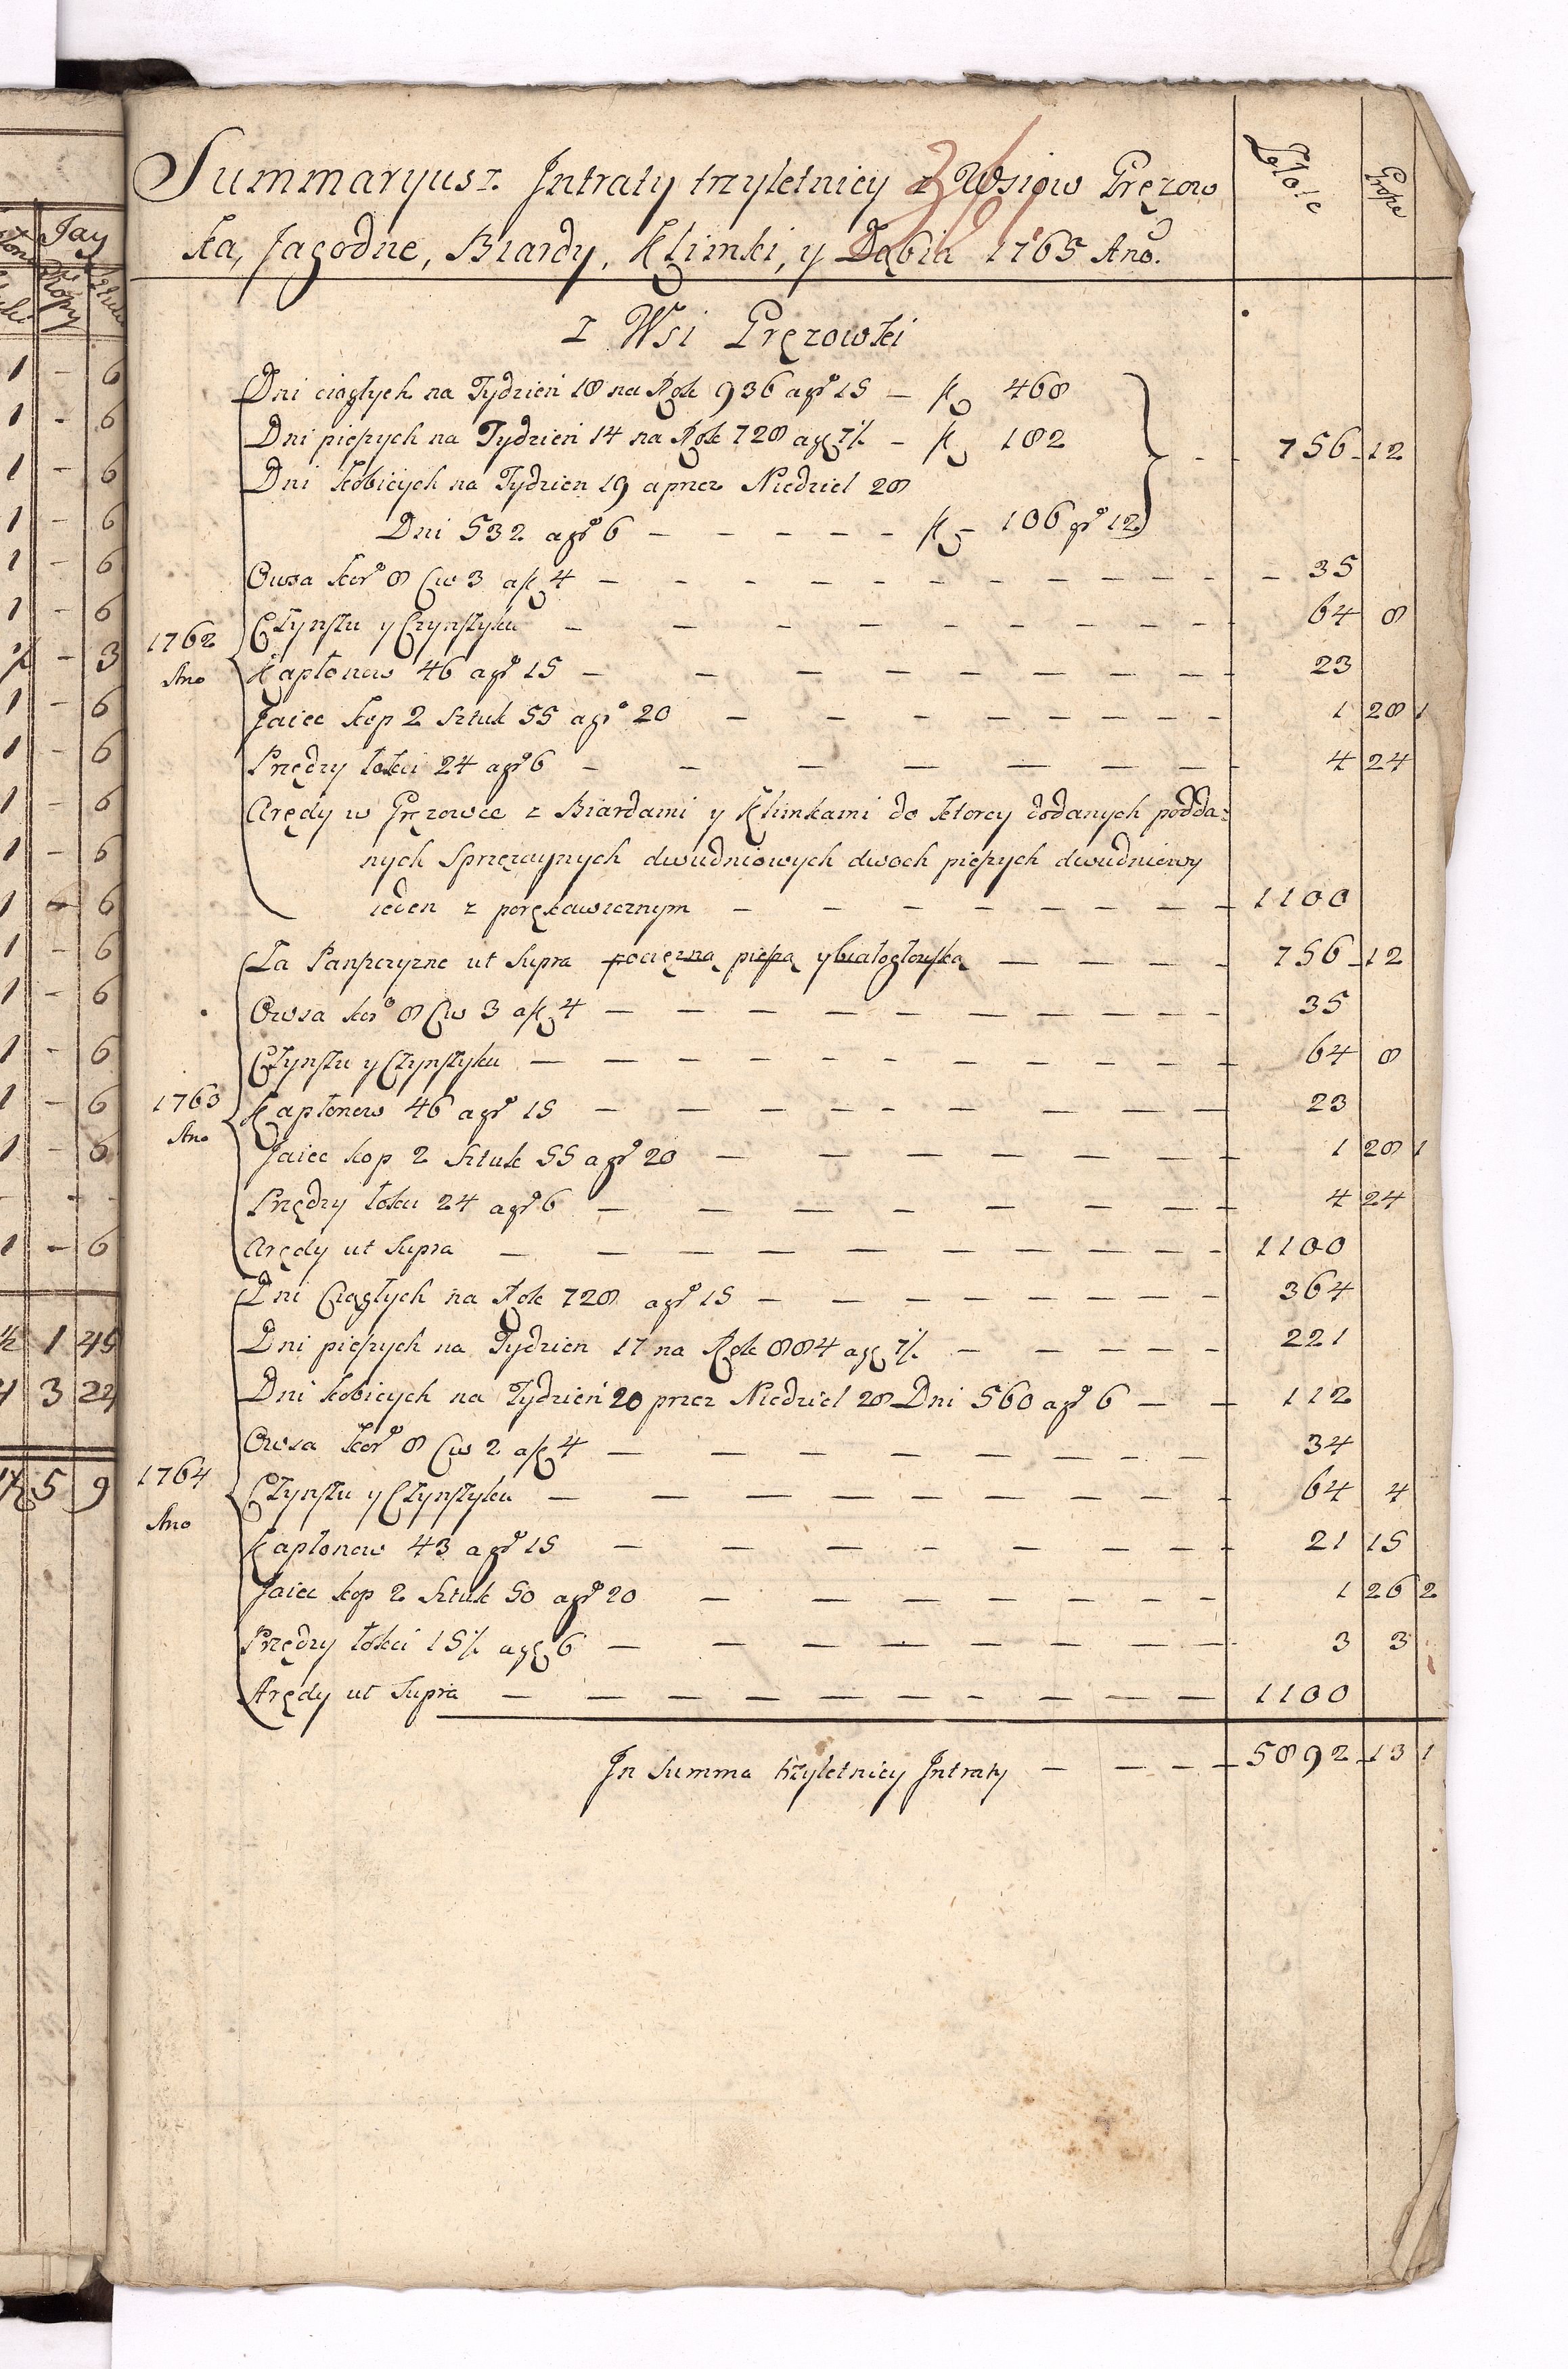 Jay
Kopy
1 - 6
1 - 6
1 - 6
1 - 6
1 - 6
1 - 6
½ - 3
1 - 6
1 - 6
1 - 6
1 - 6
1 - 6
1 - 6
1 - 6
1 - 6
1 - 6
1 - 6
- - -
1 - 6
1 45
3 22
5 9
Summaryusz Intraty trzyletniey z Wsiow Gręzow Złote Grosze
ka, Jagodne, Biardy, Klimki, y Dąbia 1765 Ano.
z Wsi Gręzowki
Dni ciągłych na Tydzień 18 na Rok 936 agr 15 — fl 468
Dni pieszych na Tydzień 14 na Rok 728 agr 7½ — fl 182 756 12
Dni kobicych na Tydzien 19 a przez Niedziel 28
Dni 532 agr 6 — fl 106 gr 12
Owsa kor 8 Cw 3 afl 4 — 35
Czynszu y Czynszyku — 64 8
1762 Ano
Kapłonow 46 agr 15 — 23
Jaiec kop 2 Sztuk 55 agr 20 — 1 28 1
Przędzy łokci 24 agr 6 — 4 24
Arędy w Gręzowce z Biardami y Klimkami do ktorey dodanych podda:
nych Sprzężaynych dwudniowych dwoch pieszych dwudniowy
ieden z porękawicznym — 1100
Za Panszczyznę ut Supra pociężną pieszą y białogłowską — 756 12
Owsa kor 8 Cw 3 afl 4 — 35
Czynszu y Czynszyku — 64 8
1763 Ano
Kapłonow 46 agr 15 — 23
Jaiec kop 2 Sztuk 55 agr 20 — 1 28 1
Przędzy łokci 24 agr 6 — 4 24
Arędy ut Supra — 1100
Dni Ciągłych na Rok 728 agr 15 — 364
Dni pieszych na Tydzien 17 na Rok 884 agr 7½ — 221
Dni kobicych na Tydzień 20 przez Niedziel 28 Dni 560 agr 6 — 112
Owsa kor 8 Cw 2 afl 4 — 34
1764 Ano
Czynszu y Czynszyku — 64 4
Kapłonow 43 agr 15 — 21 15
Jaiec kop 2 Sztuk 50 agr 20 — 1 26 2
Przędzy łokci 15½ agr 6 — 3 3
Arędy ut Supra — 1100
In Summa trzyletniey Intraty — 5892 13 1